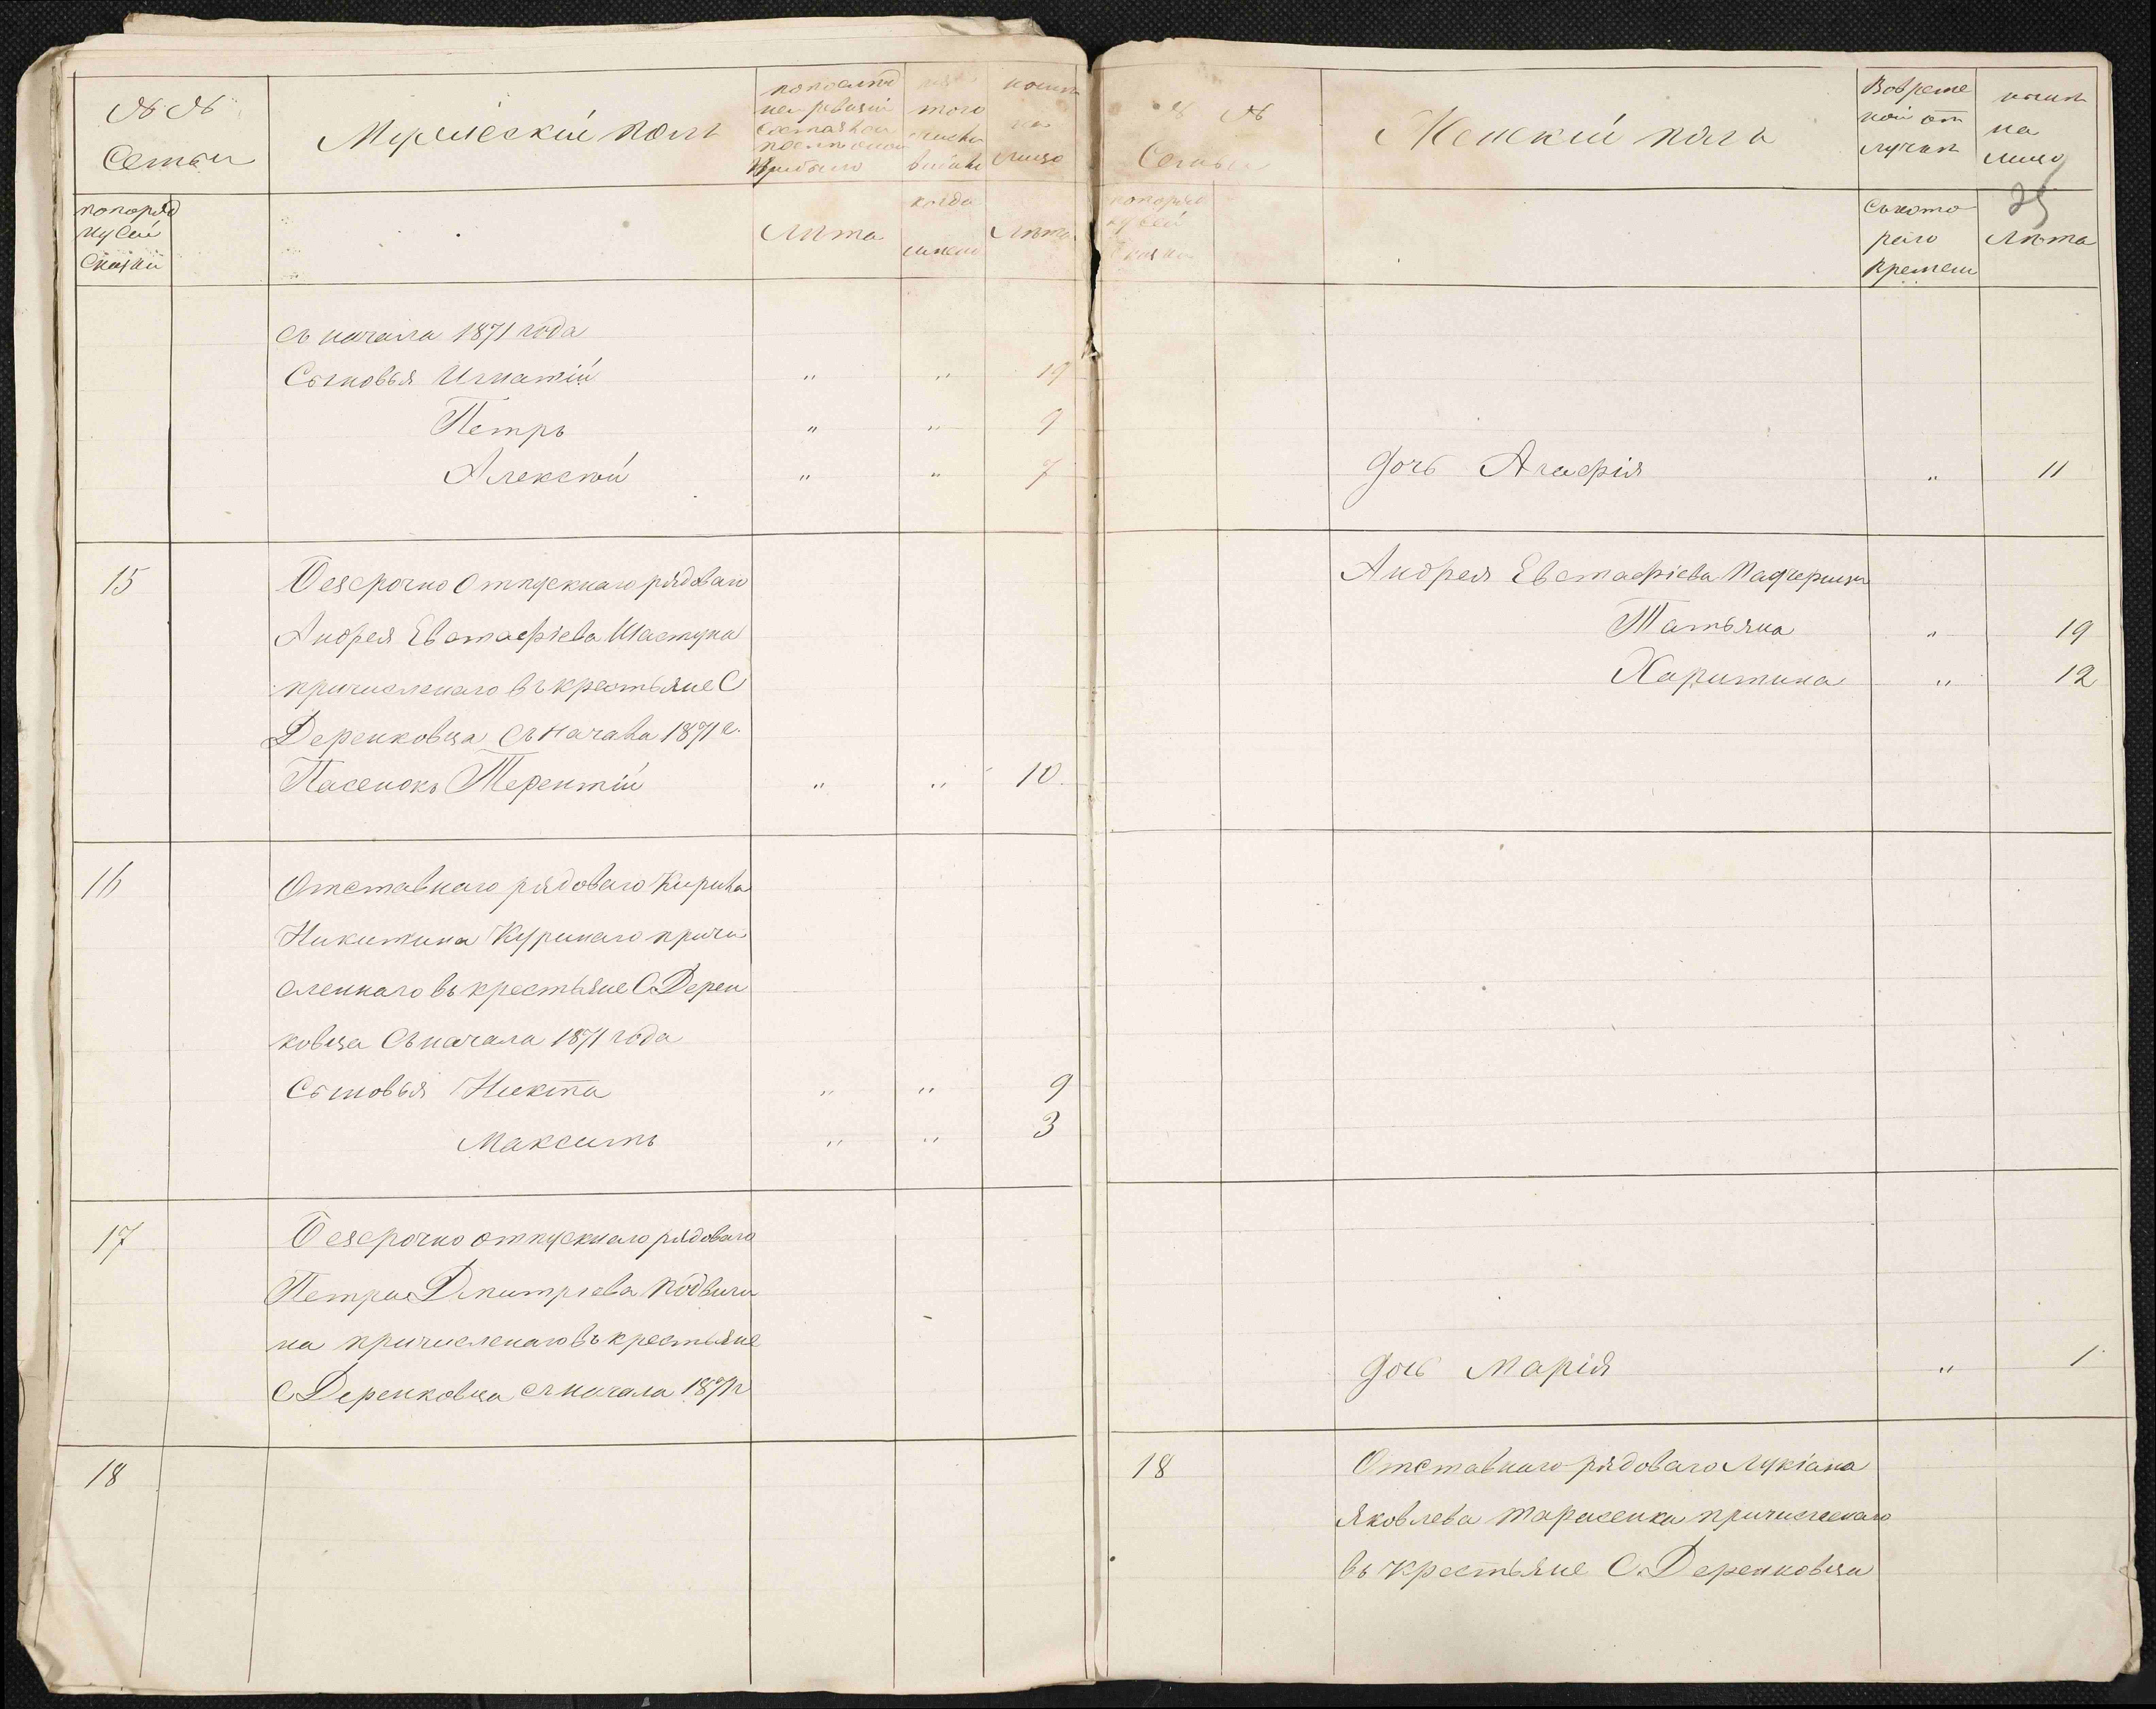 № №
Семьи
Мужескій полъ
того
числа
нынѣ
на
лицо
попоряд
ку сей
сказки
Лѣта
когда
Лѣта
съ начала 1871 года
Сыновья Игнатій " " 19
Петръ " " 9
Алексѣй " " 7
15
Безсрочно Отпускнаго рядоваго
Андрея Евстафіева Шастуна
причисленаго въ крестьяне С
Деренковца Съ Начала 1871 г.
Пасенокъ Терентій " " 10
16
Отставнаго рядоваго Кирила
Никитина Куринаго причи
сленнаго въ крестьяне С. Дерен
ковца Съ начала 1871 года
Сыновья Никита " " 9
Максимъ " " 3
17
Безсрочно отпускнаго рядоваго
Петра Дмитріева
на причисленаго въ крестьяне
С Деренковца съ начала 1871 г
18
№ №
Семьи
Женскій пола
Вовреме
ной от
лучкѣ
нынѣ
на
лицо
попоряд
ку сей
сказки
Съкото
раго
времени
25
Лѣта
Дочь Агафія " 11
Андрея Евстафіева Падчерицы
Татьяна " 19
Харитина " 12
Дочь Марія " 1
18
Отставнаго рядоваго Лукіана
Яковлева Тарасенка причисленаго
въ крестьяне С. Деренковца